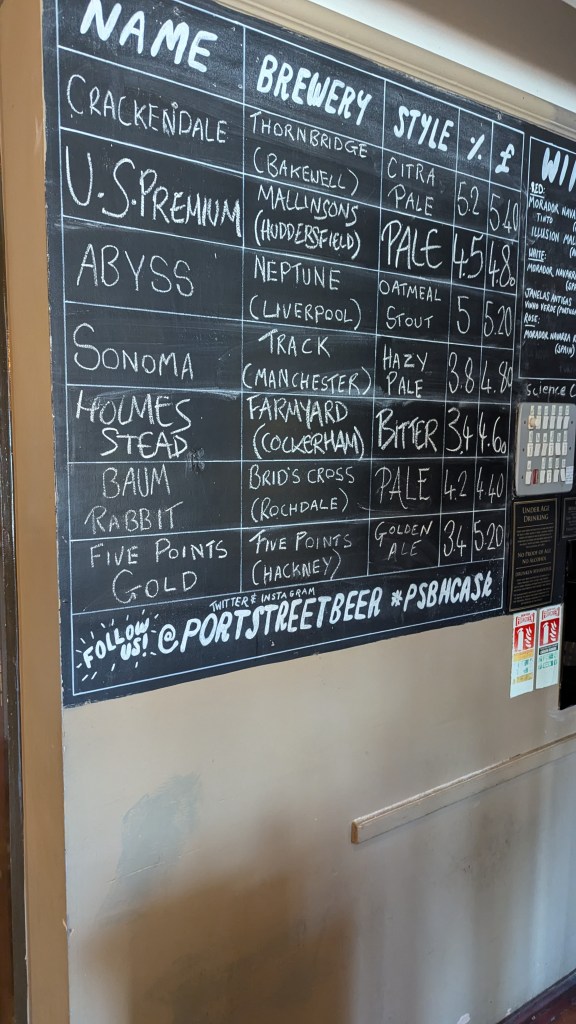 NAME BREWERY STYLE % £
CRACKENDALE THORNBRIDGE (BAKEWELL) CITRA PALE 5.2 5.40
U.S. PREMIUM MALLINSONS (HUDDERSFIELD) PALE 4.5 4.80
ABYSS NEPTUNE (LIVERPOOL) OATMEAL STOUT 5 5.20
SONOMA TRACK (MANCHESTER) HAZY PALE 3.8 4.80
HOLMES STEAD FARMYARD (COCKERHAM) BITTER 3.4 4.60
BAUM RABBIT BRID'S CROSS (ROCHDALE) PALE 4.2 4.40
FIVE POINTS GOLD FIVE POINTS (HACKNEY) GOLDEN ALE 3.4 5.20
FOLLOW US! TWITTER & INSTAGRAM
@PORTSTREETBEER #PSBHCASK
WI
RED:
MORADOR NAVA
TINTO
ILLUSION MAL
WHITE:
MORADOR NAVARR
(SPA
JANELAS ANTIGAS
VINHO VERDE (PORTUGA
ROSE:
MORADOR NAVARRA R
(SPAIN)
Science C
UNDER AGE
DRINKING
NO PROOF OF AGE
NO ALCOHOL